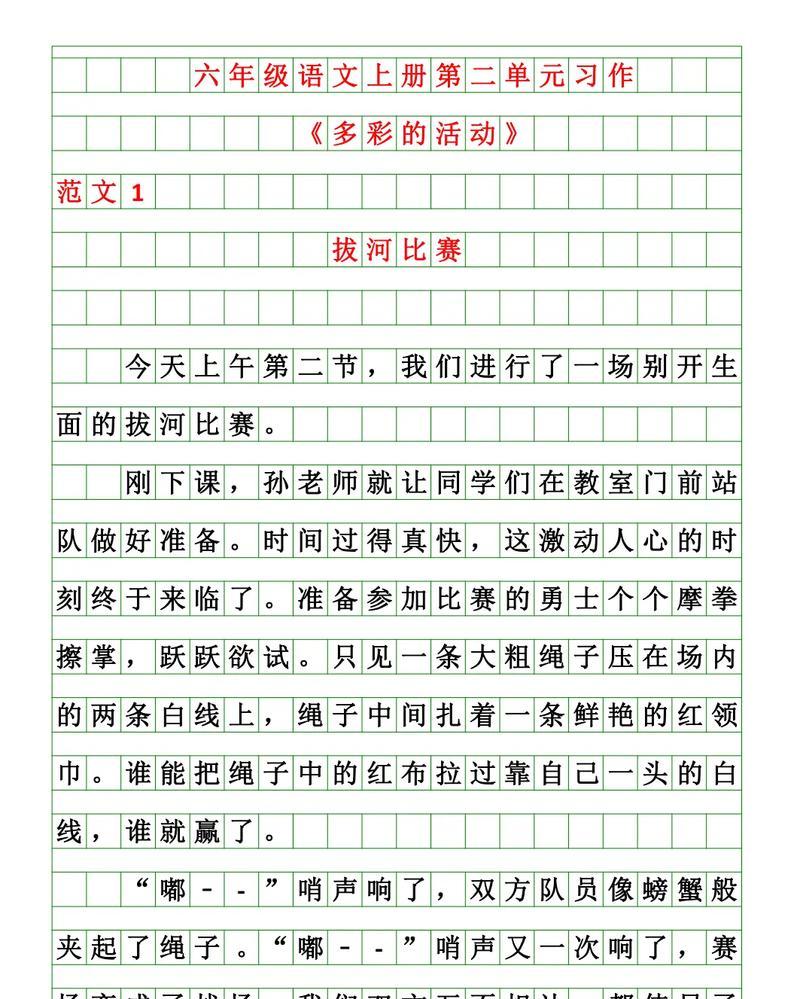 六年级语文上册第二单元习作
《多彩的活动》
范文1
拔河比赛
今天上午第二节，我们进行了一场别开生
面的拔河比赛。
刚下课，孙老师就让同学们在教室门前站
队做好准备。时间过得真快，这激动人心的时
刻终于来临了。准备参加比赛的勇士个个摩拳
擦掌，跃跃欲试。只见一条大粗绳子压在场内
的两条白线上，绳子中间扎着一条鲜艳的红领
巾。谁能把绳子中的红布拉过靠自己一头的白
线，谁就赢了。
“嘟--”哨声响了，双方队员像螃蟹般
夹起了绳子。“嘟--”哨声又一次响了，赛